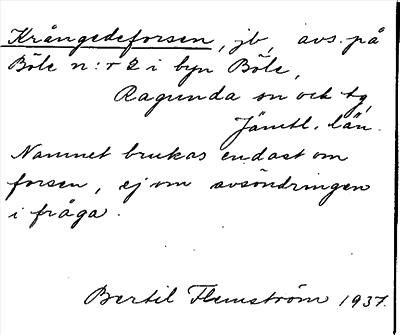 Krångedeforsen, jb, avs. på
Böle n:r 2 i byn Böle,
Ragunda sn och tg,
Jämtl. län.
Namnet brukas endast om
forsen, ej om avsöndringen
i fråga.
Bertil Flemström 1937.